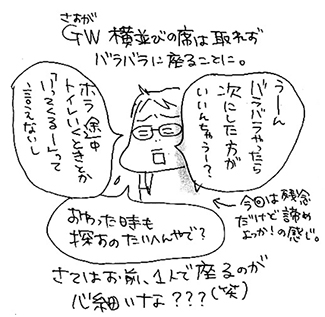 さすが
GW 横並びの席は取れず
バラバラに座ることに。
うーん
バラバラやったら
次にした方が
いいんちゃうー?
ホラ 途中
トイレいくときとか
「いってくるー」って
言えないし
おわった時も
探すのたいへんやで?
今回は残念
だけど諦め
よっか!の感じ。
さてはお前、1人で座るのが
心細いな???(笑)